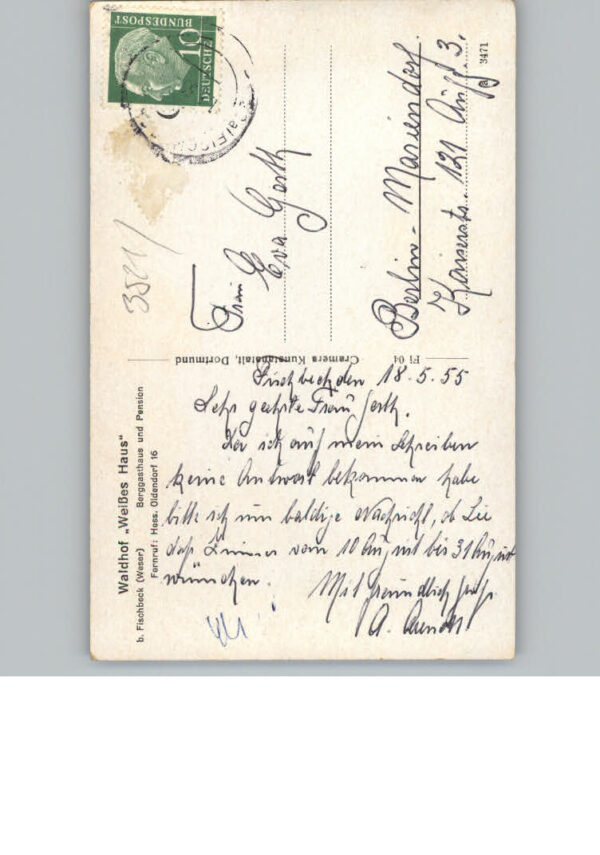 Waldhof „Weißes Haus"
b. Fischbeck (Weser) Berggasthaus und Pension
Fernruf: Hess. Oldendorf 16
Fischbeck den 18.5.55
Sehr geehrte Frau Gerth.
Da ich auf mein Schreiben
keine Antwort bekommen habe
bitte ich um baldige Nachricht, ob Sie
das Zimmer vom 10 August bis 31 August
wünschen.
Mit freundlich
A.
Fi 04 Cramers Kunstanstalt, Dortmund
DEUTSCHE
BUNDESPOST
10
3521/
Frau
Eva Gerth
Berlin-Mariendorf.
Kaiserstr. 121 Aufg. 3.
3471